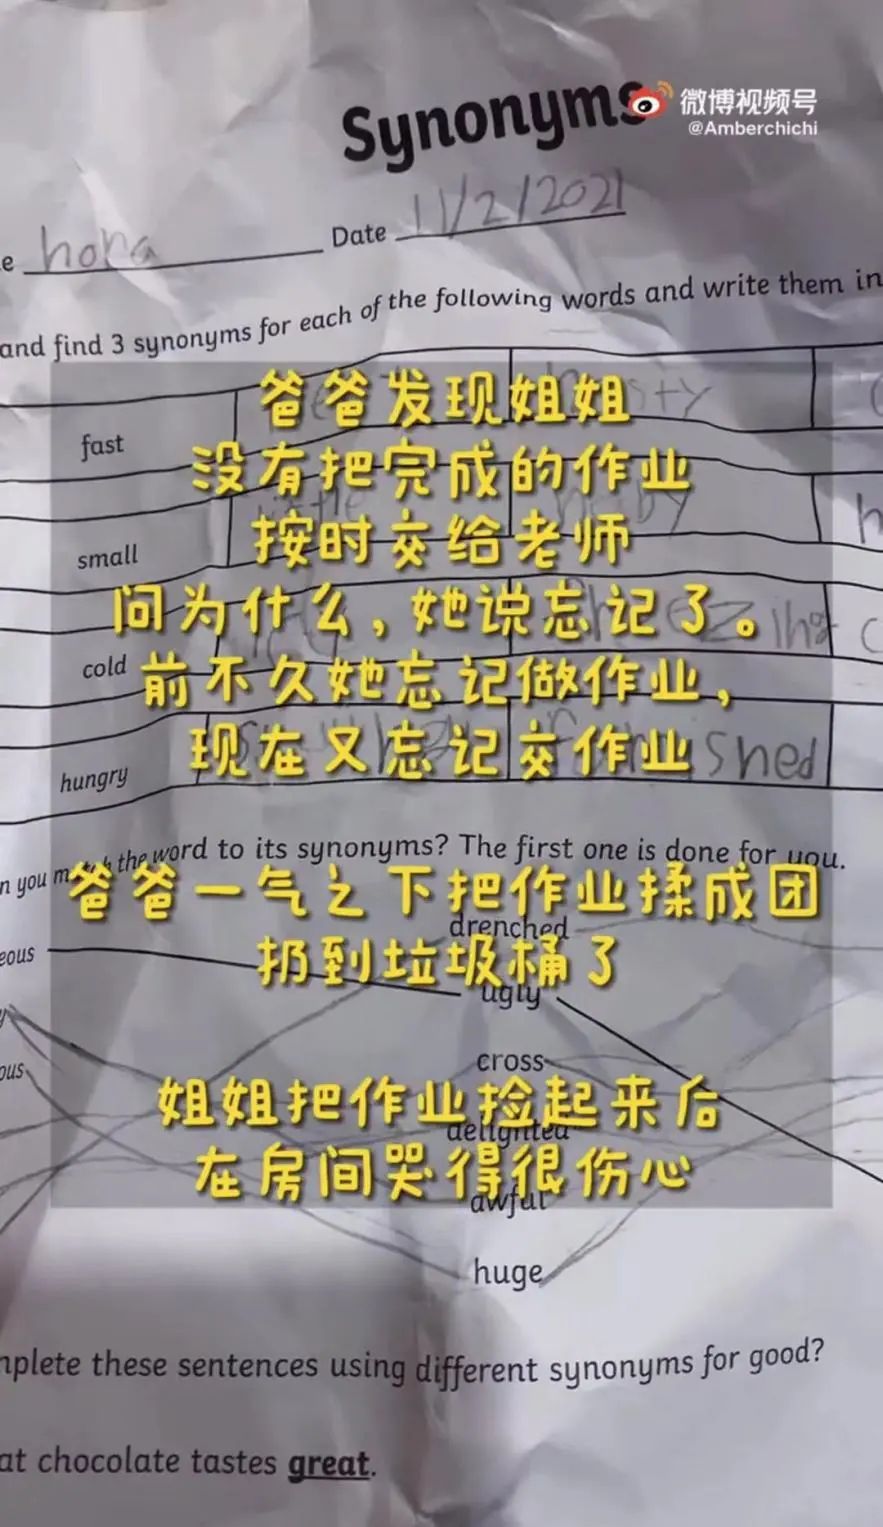 Synonyms
微博视频号
@Amberchichi
e hora Date 11/2/2021
and find 3 synonyms for each of the following words and write them in
爸爸发现姐姐
fast
没有把完成的作业
按时交给老师
small
问为什么，她说忘记了。
cold
前不久她忘记做作业，
现在又忘记交作业
hungry shed
n you match the word to its synonyms? The first one is done for you.
爸爸一气之下把作业揉成团
drenched
扔到垃圾桶了
eous
ugly
cross
ous
姐姐把作业捡起来后
delighted
在房间哭得很伤心
awful
huge
mplete these sentences using different synonyms for good?
at chocolate tastes great.